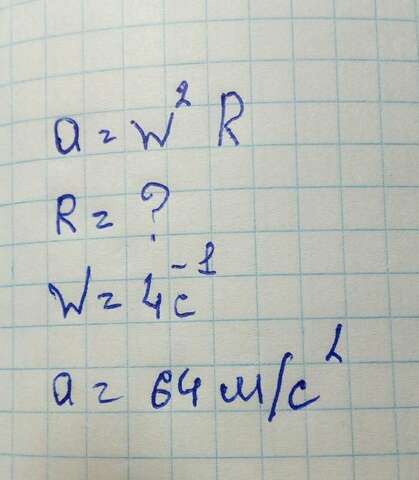 a = W² R
R = ?
W = 4c⁻¹
a = 64 м/с²